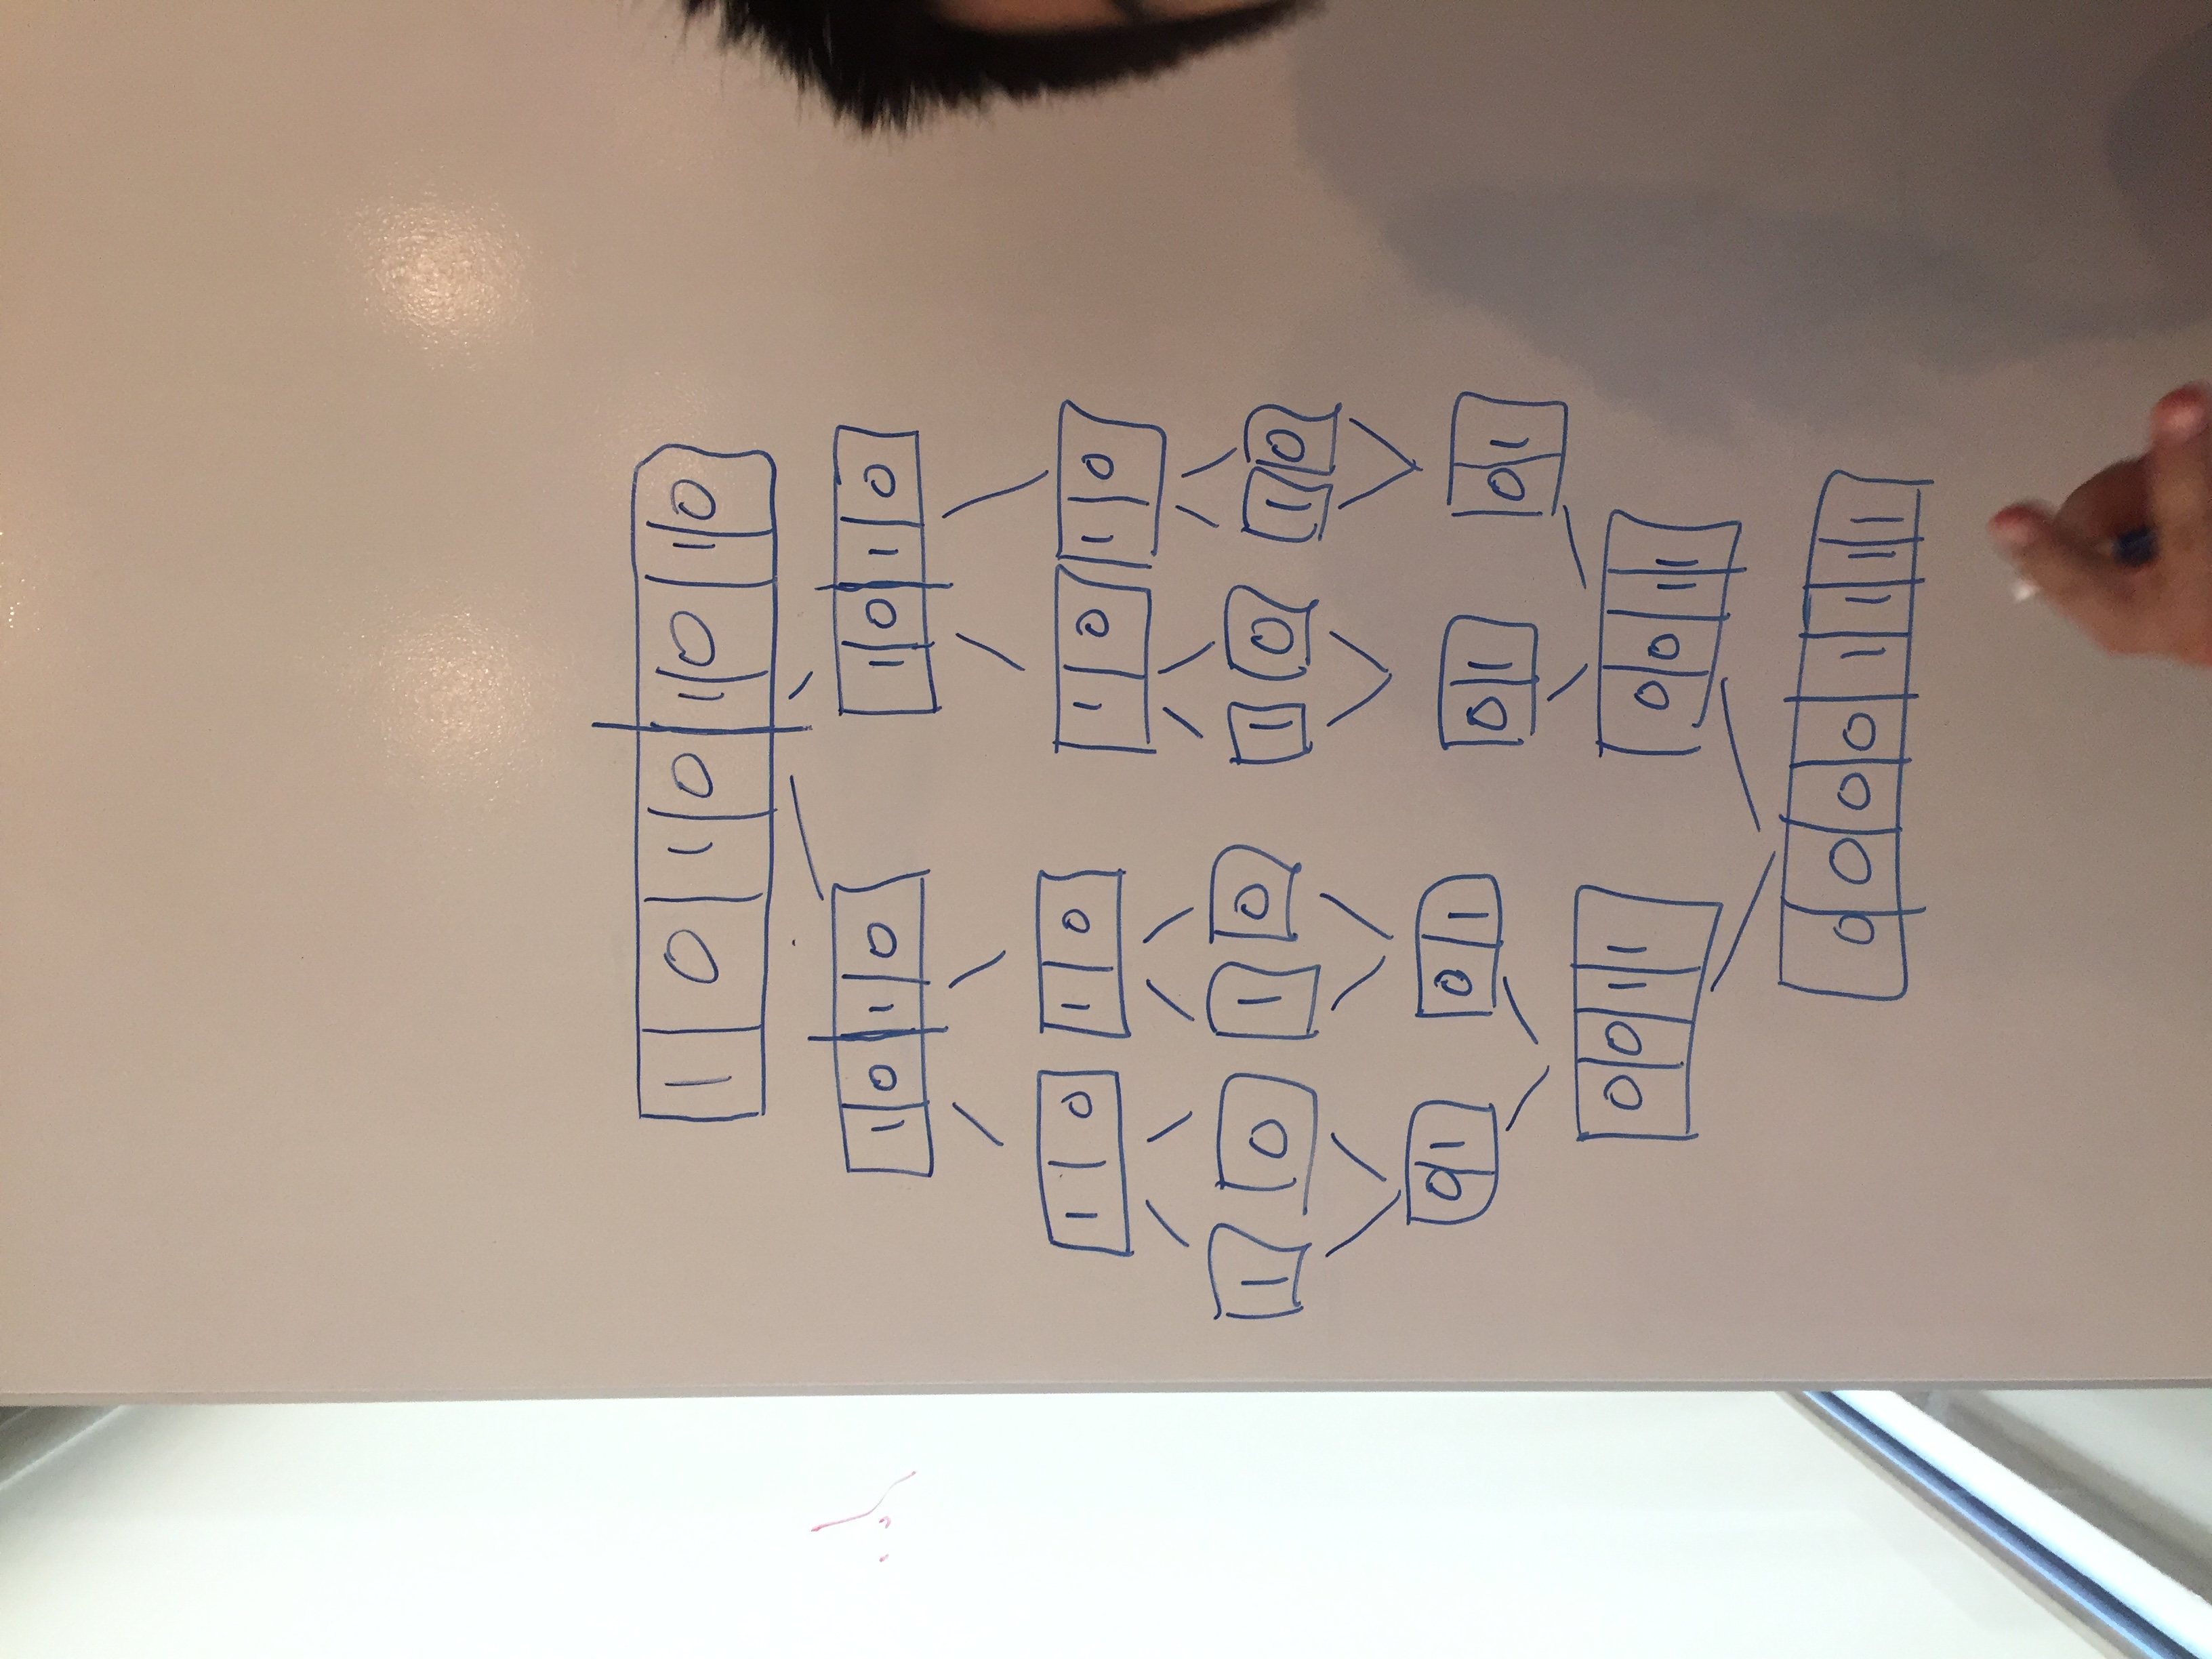 1 0 1 0 1 0 1 0
1 0 1 0 1 0 1 0
1 0 1 0 1 0 1 0
1 0 1 0 1 0 1 0
0 1 0 1 0 1 0 1
0 0 1 1 0 0 1 1
0 0 0 0 1 1 1 1